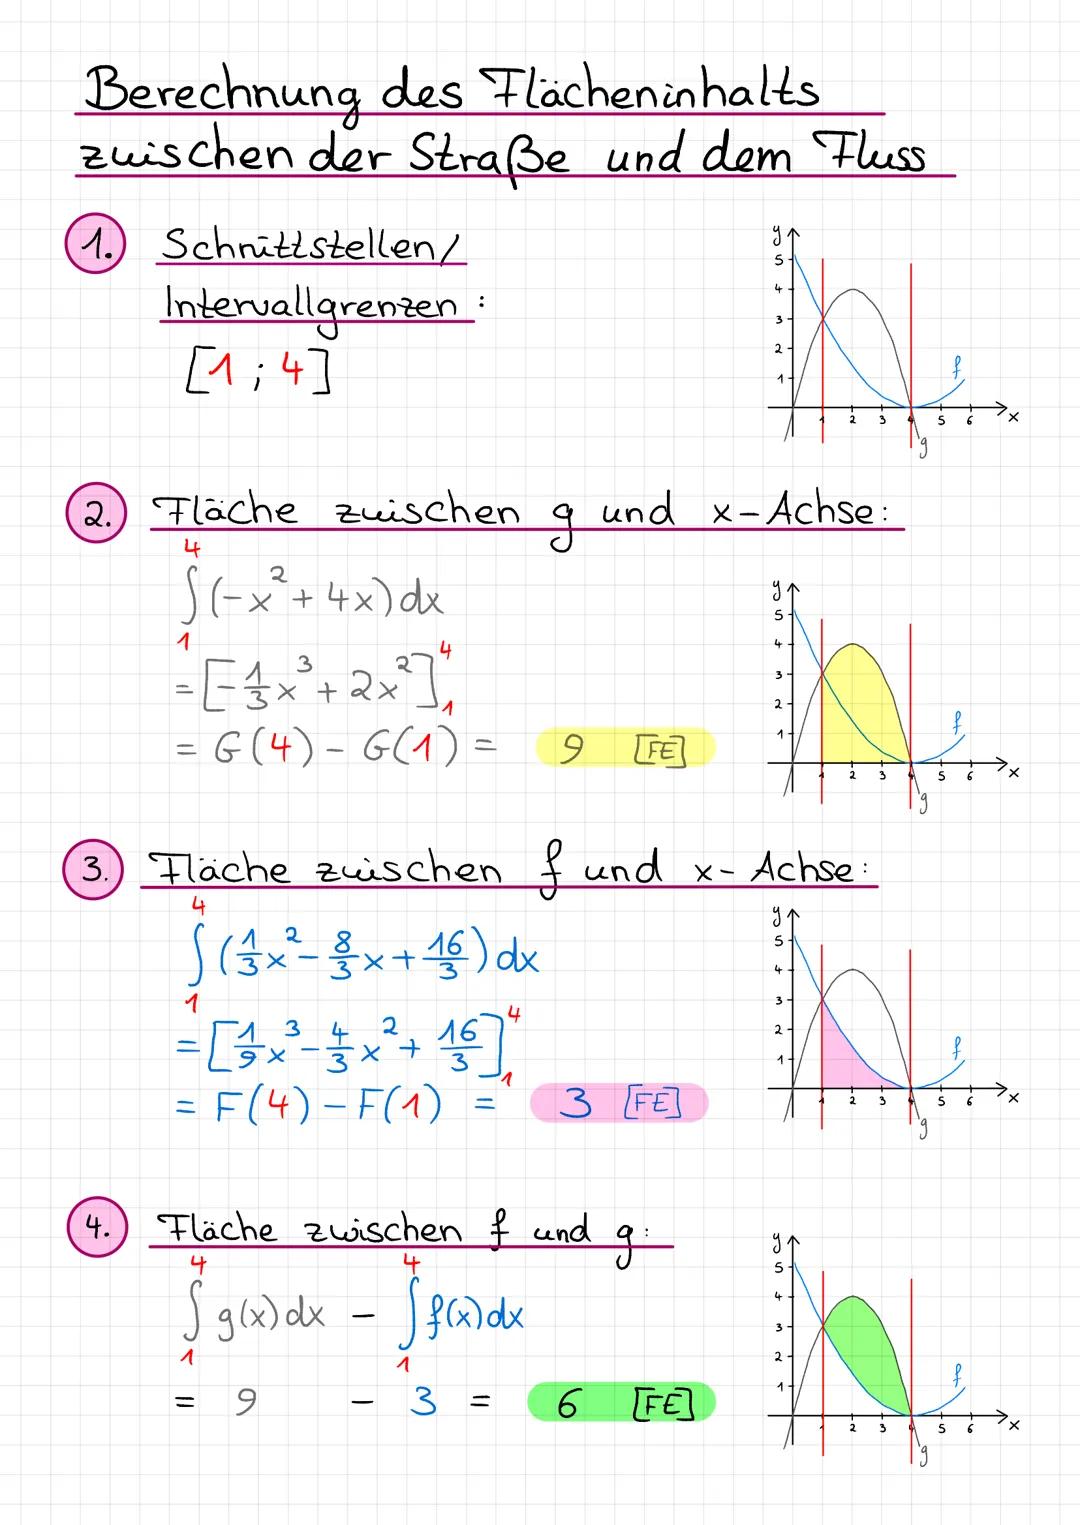 Berechnung des Flächeninhalts
zwischen der Straße und dem Fluss
1. Schnittstellen/
Intervallgrenzen:
[1; 4]
y
5
4
3
2
1
1 2 3 4 5 6 x
f
g
2. Fläche zwischen g und x-Achse:
4
∫(-x² + 4x)dx
1
= [-1/3 x³ + 2x²]⁴₁
= G(4) - G(1) = 9 [FE]
y
5
4
3
2
1
1 2 3 4 5 6 x
f
g
3. Fläche zwischen f und x-Achse:
4
∫(1/3 x² - 8/3 x + 16/3)dx
1
= [1/9 x³ - 4/3 x² + 16/3]⁴₁
= F(4) - F(1) = 3 [FE]
y
5
4
3
2
1
1 2 3 4 5 6 x
f
g
4. Fläche zwischen f und g:
4 4
∫ g(x)dx - ∫ f(x)dx
1 1
= 9 - 3 = 6 [FE]
y
5
4
3
2
1
1 2 3 4 5 6 x
f
g